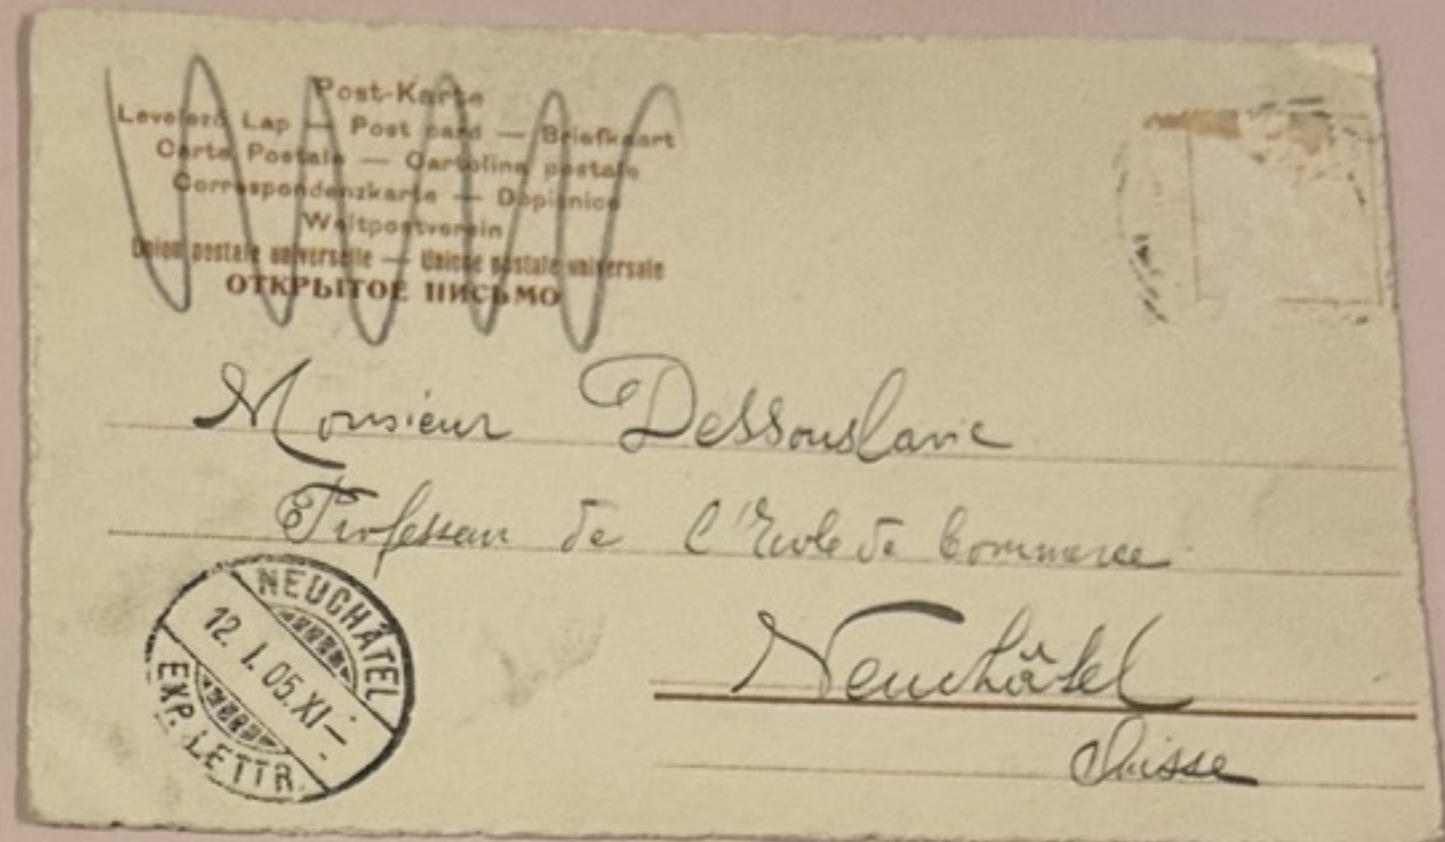 Post-Karte
Levelező Lap — Post card — Briefkaart
Carte Postale — Cartolina postale
Correspondenzkarte — Dopisnice
Weltpostverein
Union postale universelle — Unione postale universale
ОТКРЫТОЕ ПИСЬМО
Monsieur Dessouslavie
Professeur de l'Ecole de Commerce
Neuchâtel
Suisse
NEUCHÂTEL
12. I. 05. XI–
EXP. LETTR.